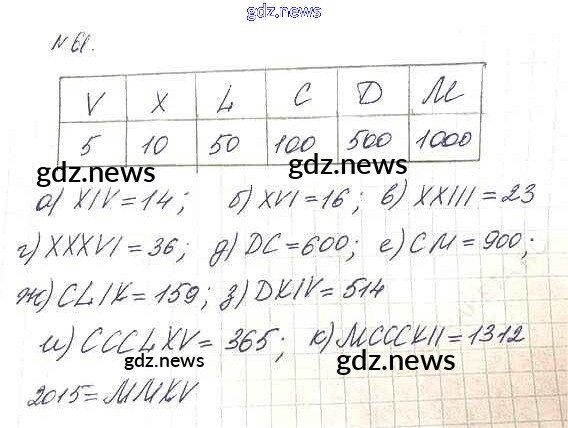 gdz.news
№61.
V X L C D M
5 10 50 100 500 1000
gdz.news gdz.news
а) XIV = 14; б) XVI = 16; в) XXIII = 23
г) XXXVI = 36; д) DC = 600; е) CM = 900;
ж) CLIX = 159; з) DXIV = 514
и) CCCLXV = 365; к) MCCCXII = 1312
gdz.news gdz.news
2015 = MMXV